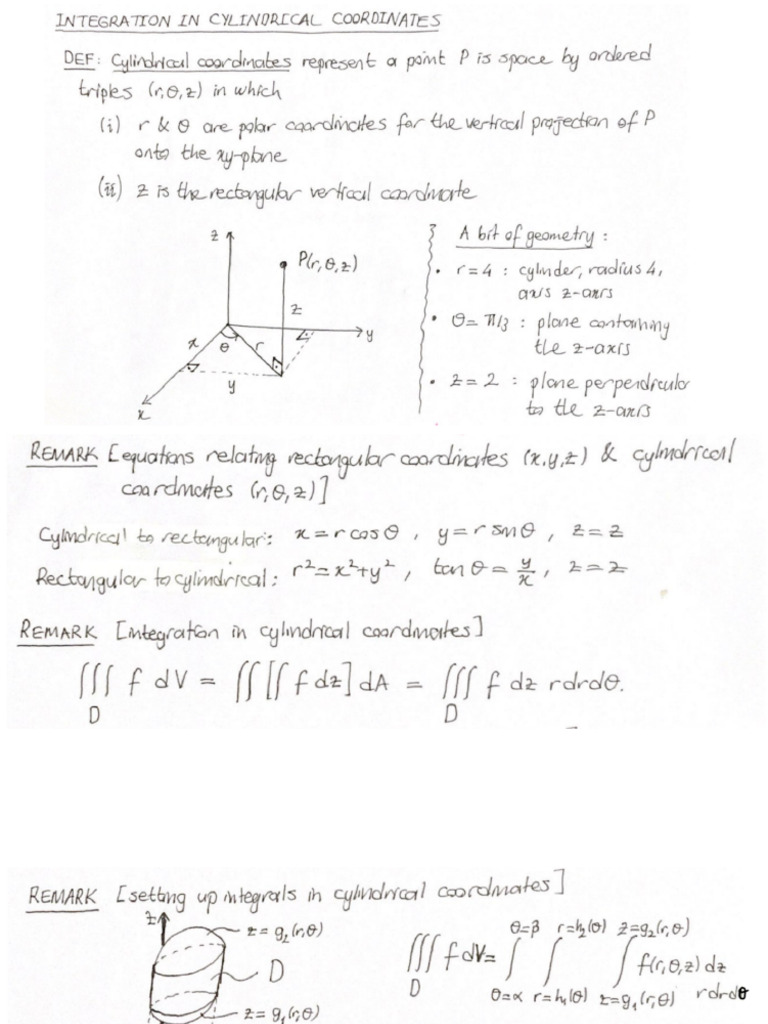 INTEGRATION IN CYLINDRICAL COORDINATES
DEF: Cylindrical coordinates represent a point P is space by ordered
triples (r,θ,z) in which
(i) r & θ are polar coordinates for the vertical projection of P
onto the xy-plane
(ii) z is the rectangular vertical coordinate
z
P(r,θ,z)
z
y
x
θ
r
y
x
A bit of geometry:
• r=4 : cylinder, radius 4,
axis z-axis
• θ=π/3 : plane containing
the z-axis
• z=2 : plane perpendicular
to the z-axis
REMARK [equations relating rectangular coordinates (x,y,z) & cylindrical
coordinates (r,θ,z)]
Cylindrical to rectangular: x=rcosθ, y=r sinθ, z=z
Rectangular to cylindrical: r²=x²+y², tanθ=y/x, z=z
REMARK [integration in cylindrical coordinates]
∭ f dV = ∬[∫f dz]dA = ∭ f dz rdrdθ.
D D
REMARK [setting up integrals in cylindrical coordinates]
z
z=g₂(r,θ)
D
z=g₁(r,θ)
θ=β r=h₂(θ) z=g₂(r,θ)
∭ f dV= ∫ ∫ ∫ f(r,θ,z) dz
D θ=α r=h₁(θ) z=g₁(r,θ) rdrdθ